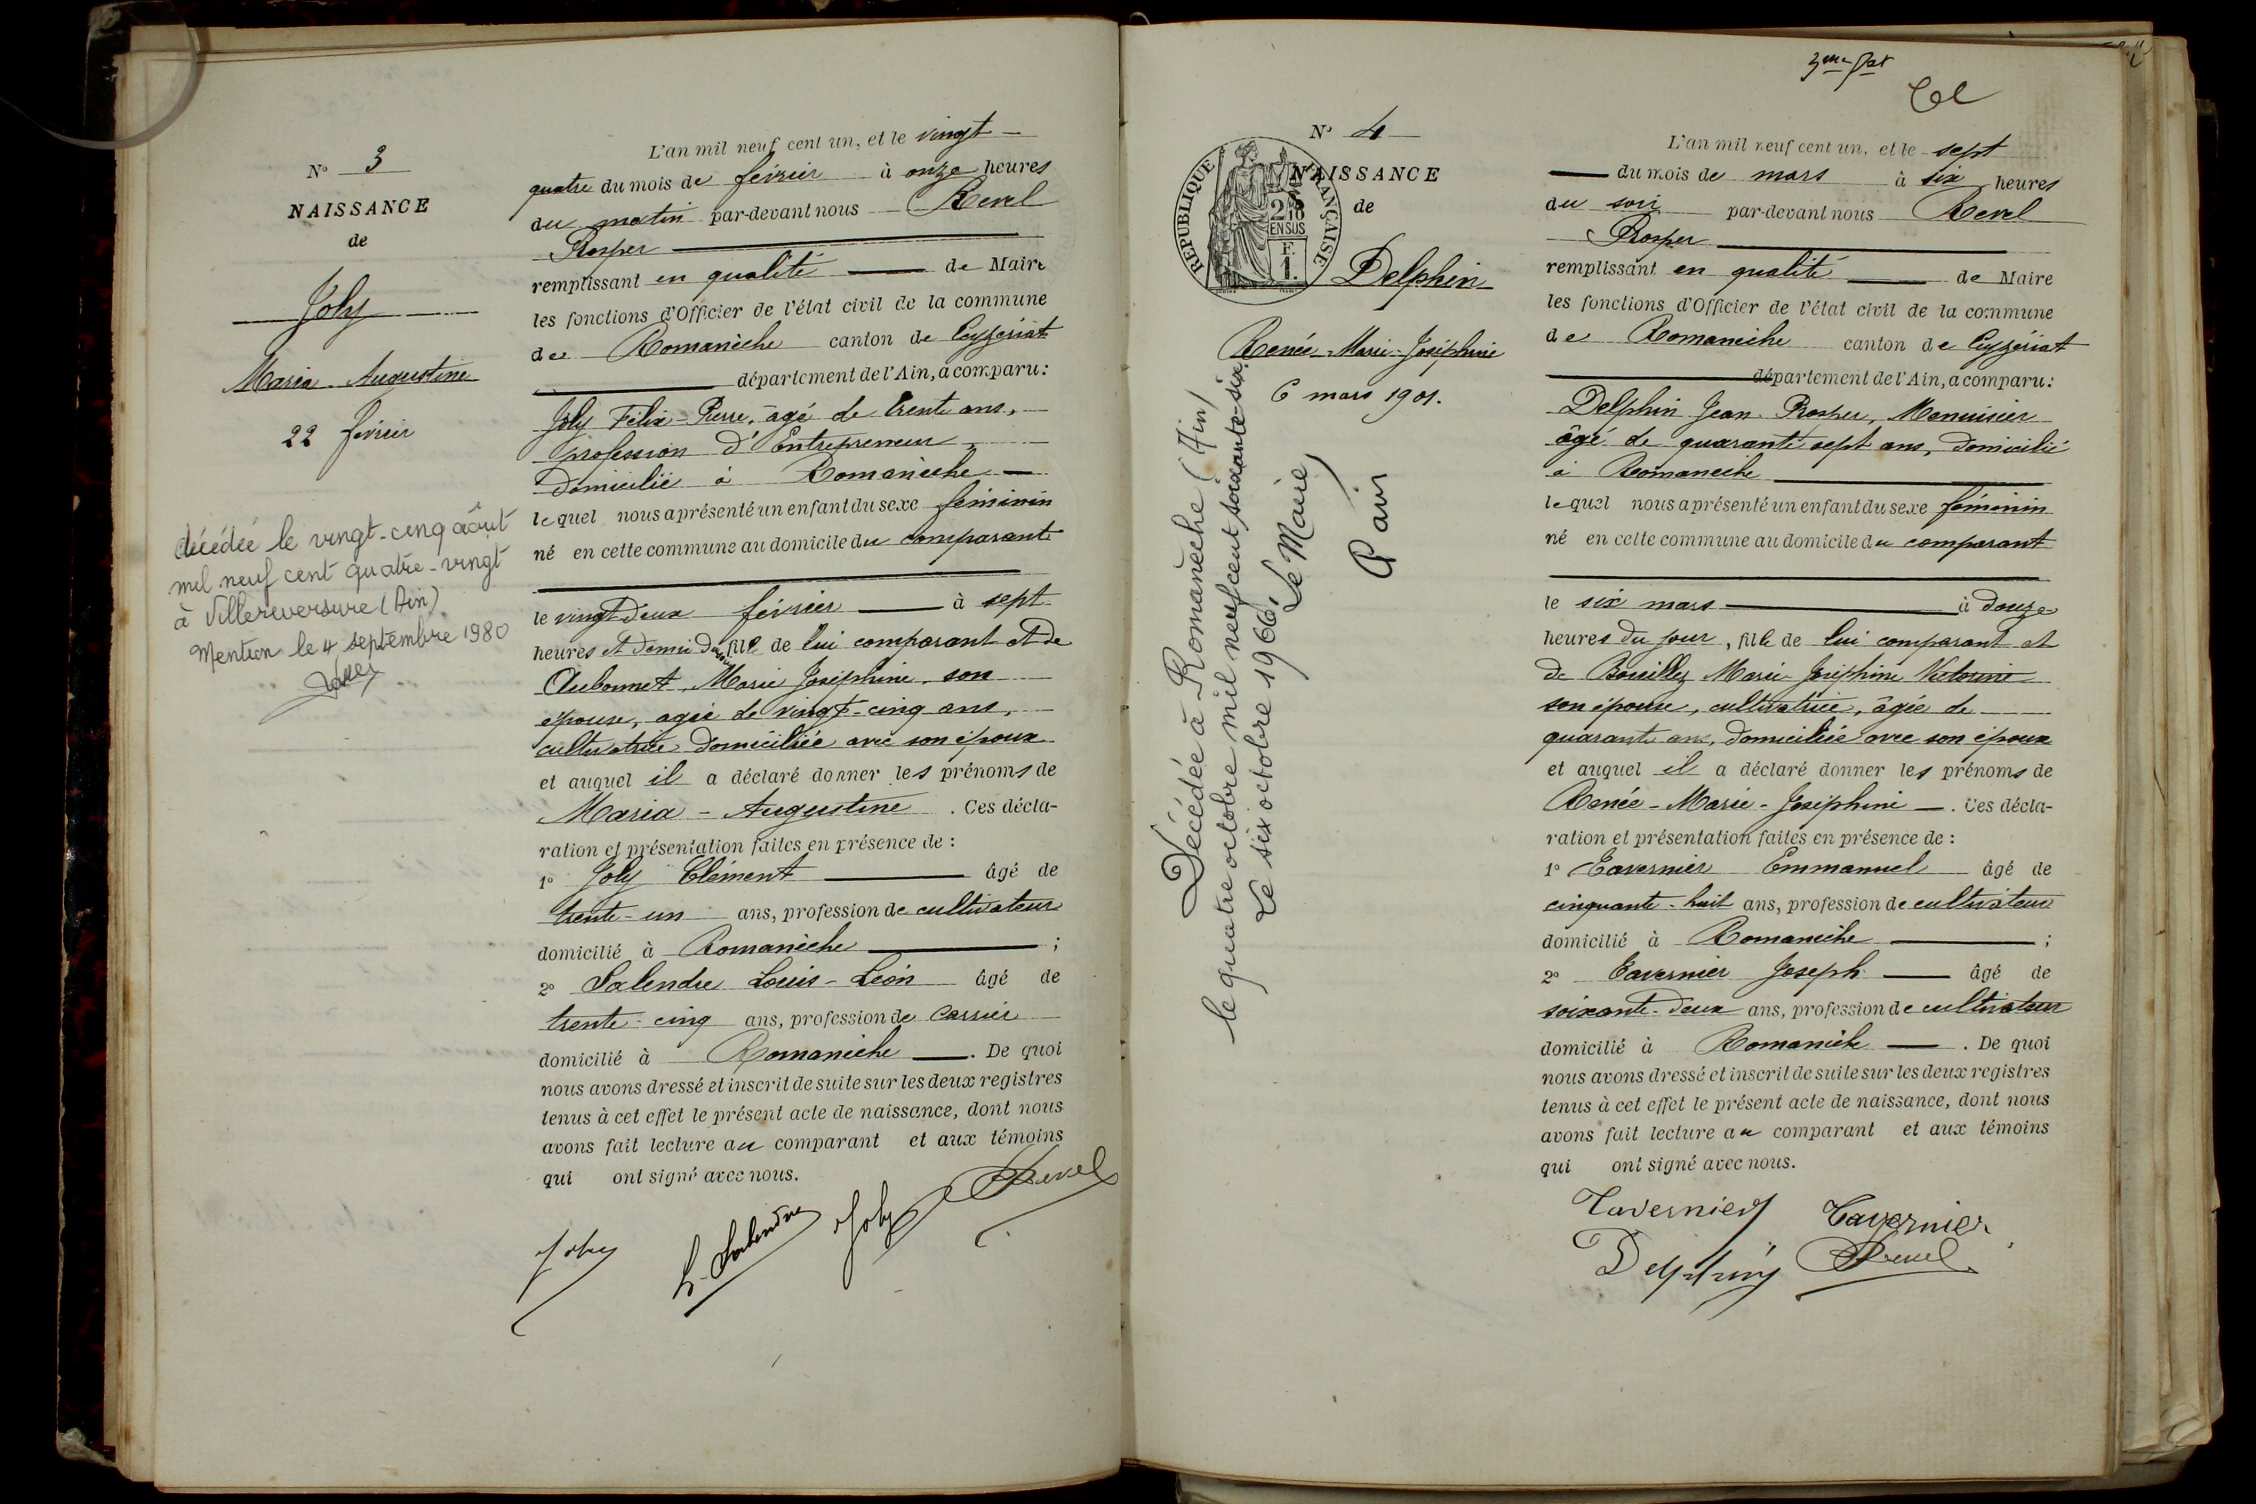 N° 3
NAISSANCE
de
Joly
Maria Augustine
22 février
décédée le vingt-cinq août
mil neuf cent quatre-vingt
à Villereversure (Ain)
Mention le 4 septembre 1980
L'an mil neuf cent un, et le vingt
quatre du mois de février à onze heures
du matin par-devant nous Revel
Prosper
remplissant en qualité de Maire
les fonctions d'Officier de l'état civil de la commune
de Romanèche canton de Ceyzériat
département de l'Ain, a comparu :
Joly Félix-Pierre, âgé de trente ans,
profession d'Entrepreneur
domicilié à Romanèche
lequel nous a présenté un enfant du sexe féminin
né en cette commune au domicile du comparant
le vingt deux février à sept
heures et demi du fille de lui comparant et de
Marie Joséphine son
épouse, agée de vingt-cinq ans,
cultivatrice domiciliée avec son époux
et auquel il a déclaré donner les prénoms de
Maria - Augustine. Ces décla-
ration et présentation faites en présence de :
1° Joly Clément âgé de
trente-un ans, profession de cultivateur
domicilié à Romanèche ;
2° Salendre Louis-Léon âgé de
trente-cinq ans, profession de carrier
domicilié à Romanèche. De quoi
nous avons dressé et inscrit de suite sur les deux registres
tenus à cet effet le présent acte de naissance, dont nous
avons fait lecture au comparant et aux témoins
qui ont signé avec nous.
Joly L. Salendre Joly Revel
N° 4
NAISSANCE
de
RÉPUBLIQUE FRANÇAISE
2/10
EN SUS
F.
1.
Delphin
Renée-Marie-Joséphine
6 mars 1901.
Décédée à Romanèche (Ain)
le quatre octobre mil neuf cent soixante-six.
Le six octobre 1966, Le Maire
3me
L'an mil neuf cent un, et le sept
du mois de mars à six heures
du soir par-devant nous Revel
Prosper
remplissant en qualité de Maire
les fonctions d'Officier de l'état civil de la commune
de Romanèche canton de Ceyzériat
département de l'Ain, a comparu :
Delphin Jean-Prosper, Menuisier
âgé de quarante sept ans, domicilié
à Romanèche
lequel nous a présenté un enfant du sexe féminin
né en cette commune au domicile du comparant
le six mars à douze
heures du jour, fille de lui comparant et
de Bouillez Marie-Joséphine Victorine
son épouse, cultivatrice, âgée de
quarante ans, domiciliée avec son époux
et auquel il a déclaré donner les prénoms de
Renée-Marie-Joséphine. Ces décla-
ration et présentation faites en présence de :
1° Tavernier Emmanuel âgé de
cinquante-huit ans, profession de cultivateur
domicilié à Romanèche ;
2° Tavernier Joseph âgé de
soixante-deux ans, profession de cultivateur
domicilié à Romanèche. De quoi
nous avons dressé et inscrit de suite sur les deux registres
tenus à cet effet le présent acte de naissance, dont nous
avons fait lecture au comparant et aux témoins
qui ont signé avec nous.
Tavernier Tavernier
Delphin Revel